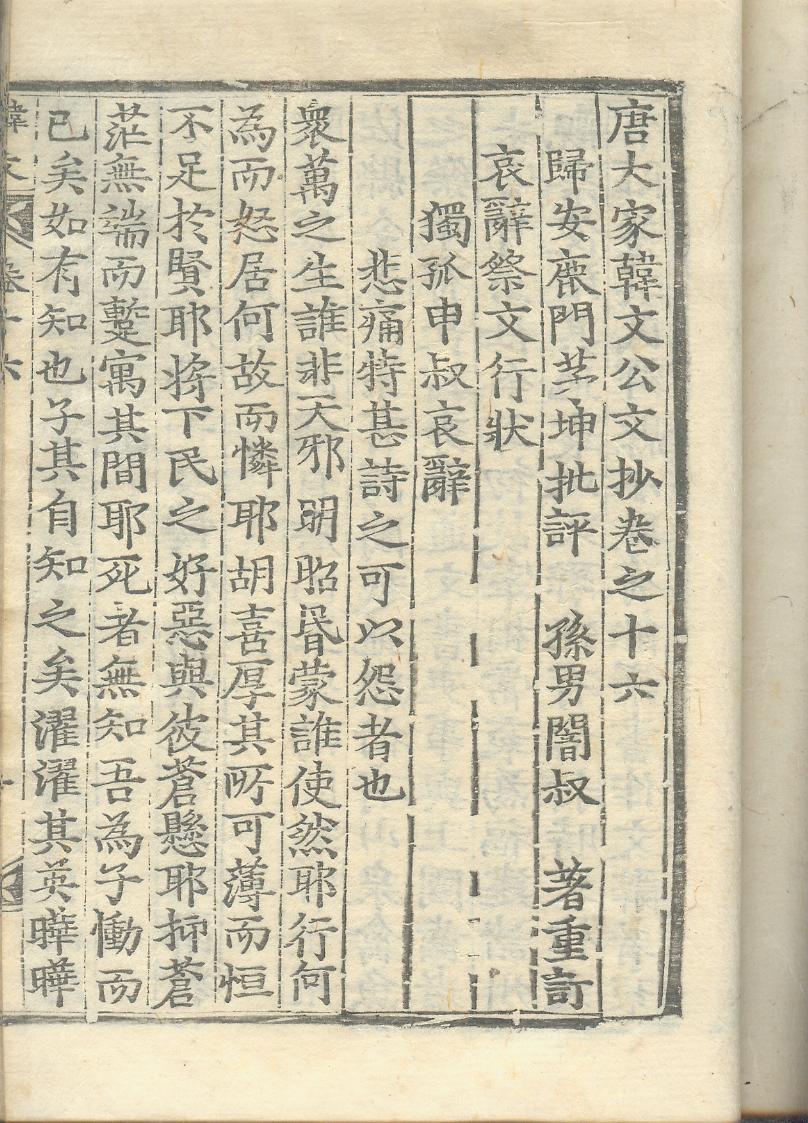 唐大家韓文公文抄卷之十六
歸安鹿門茅坤批評 孫男闇叔 著重訂
哀辭祭文行狀
獨孤申叔哀辭
悲痛特甚詩之可以怨者也
衆萬之生誰非天邪明昭昬蒙誰使然耶行何
為而怒居何故而憐耶胡喜厚其所可薄而恒
不足於賢耶将下民之好惡與彼蒼懸耶抑蒼
茫無端而蹔寓其間耶死者無知吾為子慟而
已矣如有知也子其自知之矣濯濯其英曄曄
韓文 卷十六